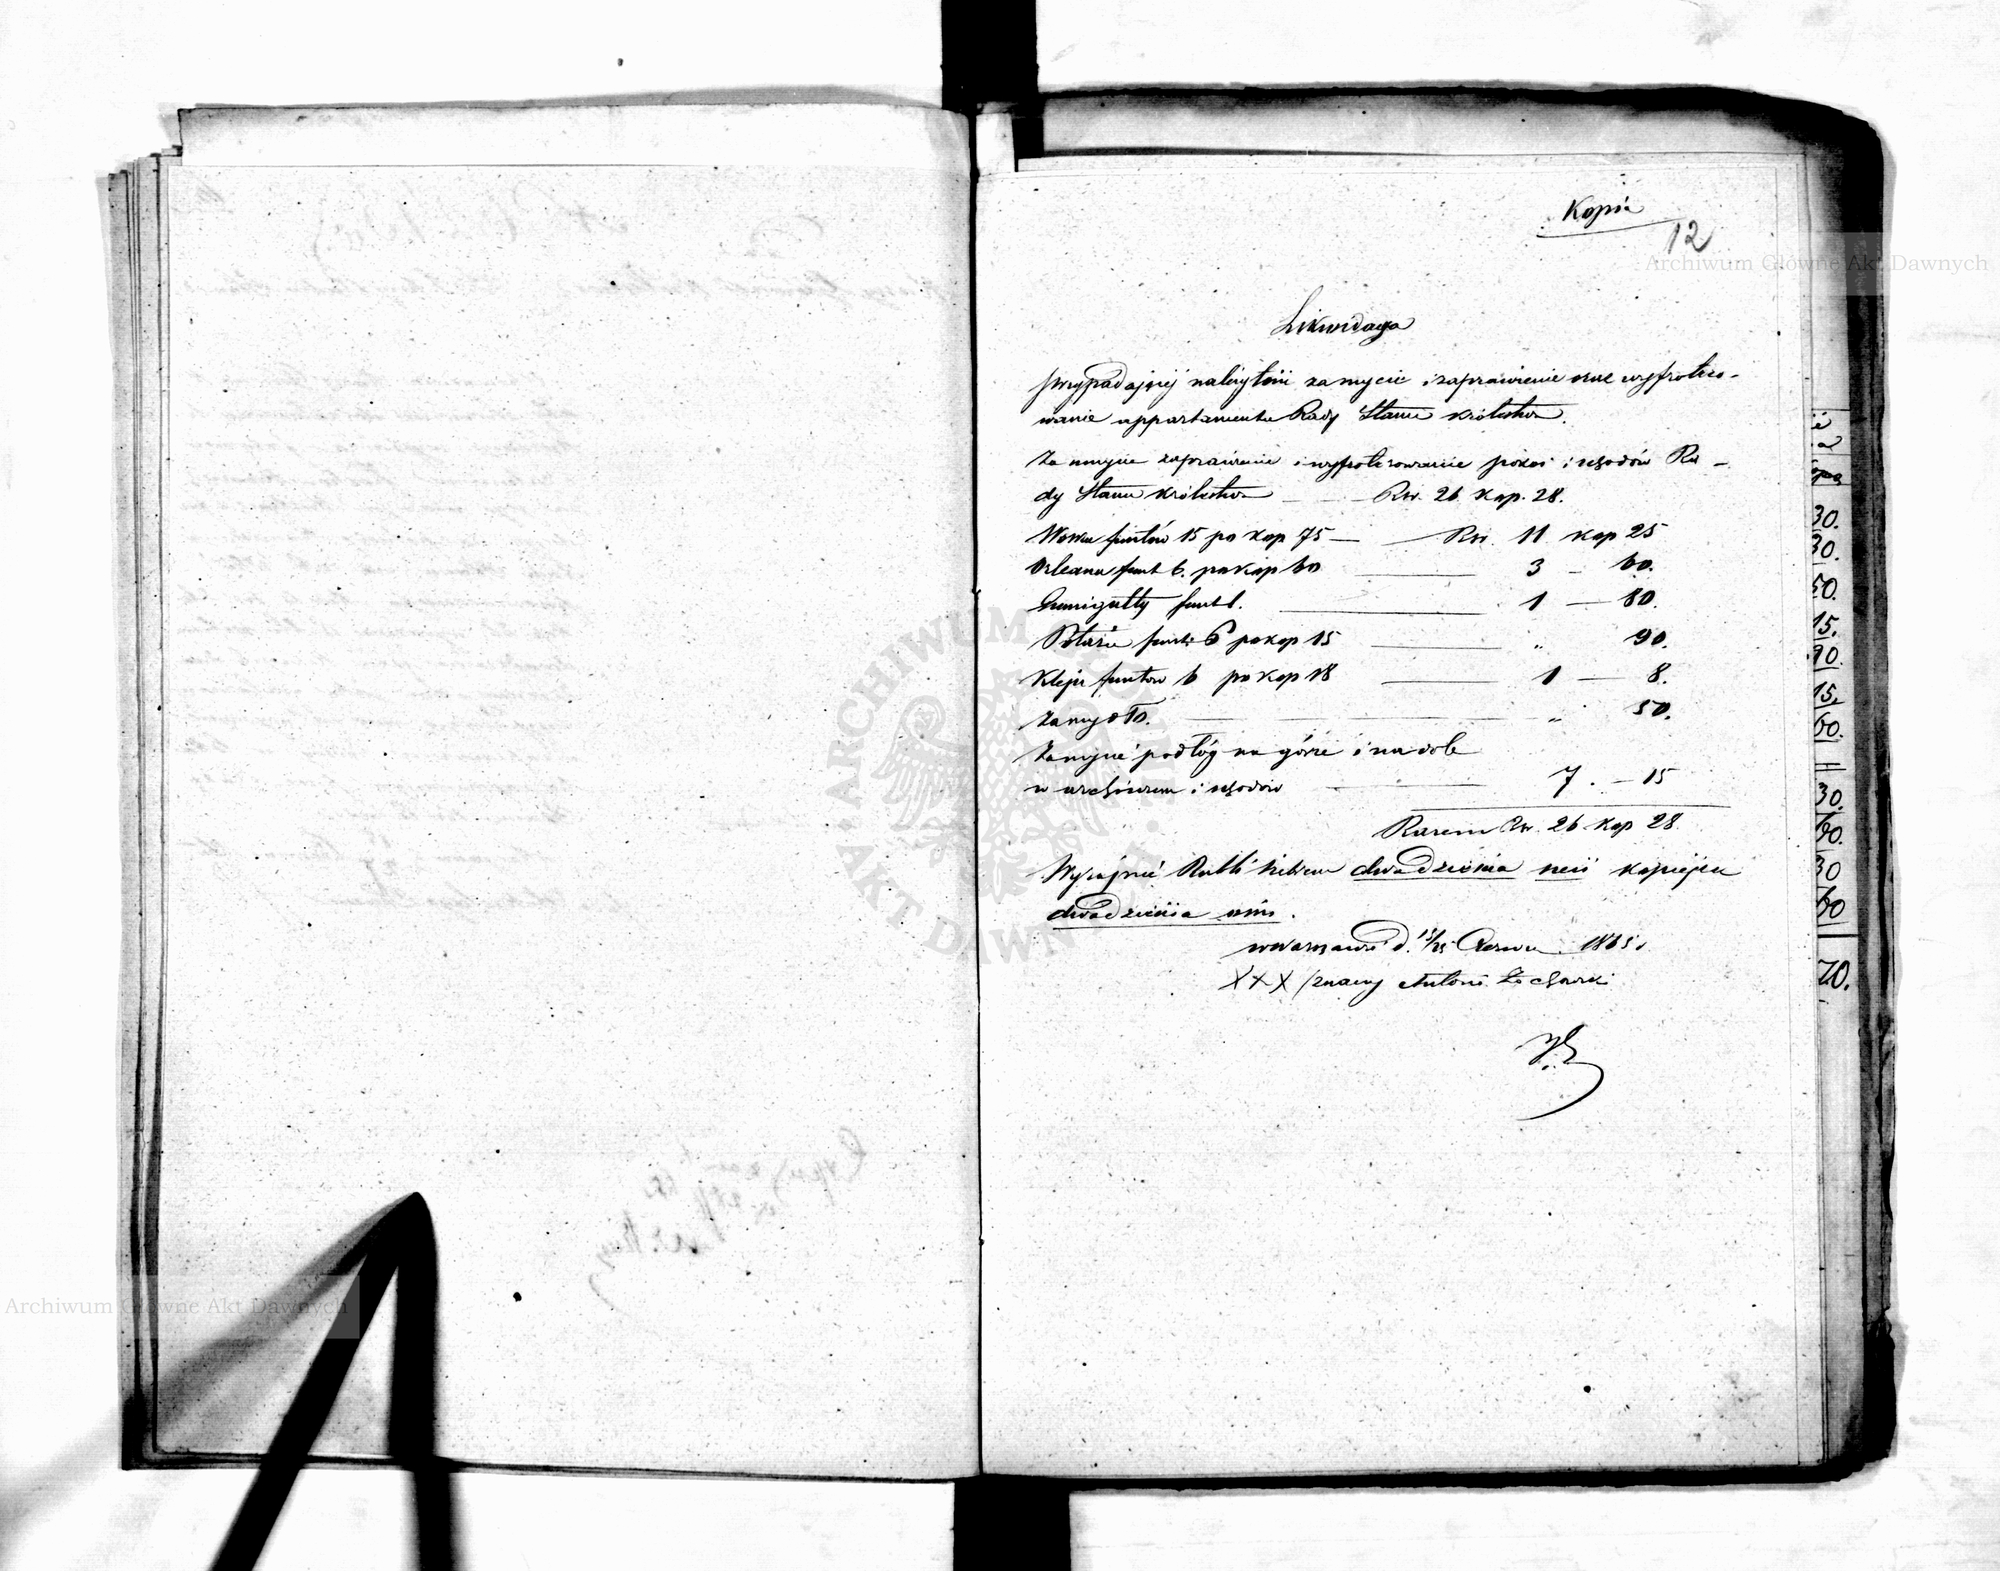 Kopia
12
Likwidacya
przypadającej należytości za mycie i zaprawienie oraz wyfrotero-
wanie appartamentu Rady Stanu Królestwa.
Za mycie zaprawienie i wyfroterowanie pokoi i schodów Ra-
dy Stanu Królestwa — Rsr. 26 kop. 28.
Wosku funtów 15 po kop 75 — Rsr. 11 kop 25
Orleanu funt 6. po kop 60 — 3 — 60.
Gumigutty funt 1. — 1 — 80.
Potażu funt: 6 po kop 15 — „ 90.
Kleju funtów 6 po kop 18 — 1 — 8.
Za mydło. — „ 50.
Za mycie podłóg na górze i na dole
w archiwum i schodów — 7. — 15
Razem Rsr. 26 kop 28
Wyraźnie Rubli srebrem dwadzieścia sześć kopiejek
dwadzieścia ośm.
w Warszawie d. 13/25 Czerwca 1865 r.
XXX /znaki Antoni
Archiwum Główne Akt Dawnych
Archiwum Główne Akt Dawnych
ARCHIWUM GŁÓWNE AKT DAWNYCH
30.
30.
50.
15.
90.
15.
60.
30.
60.
30
60
70.